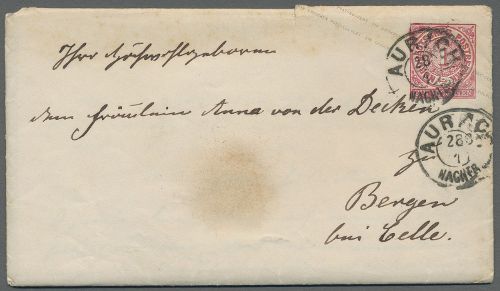 Ihro Hochwohlgeboren
dem Fräulein Anna von der Decken
zu
Bergen
bei Celle.
AURICH
28
NACHER
AURICH
288
NACHER